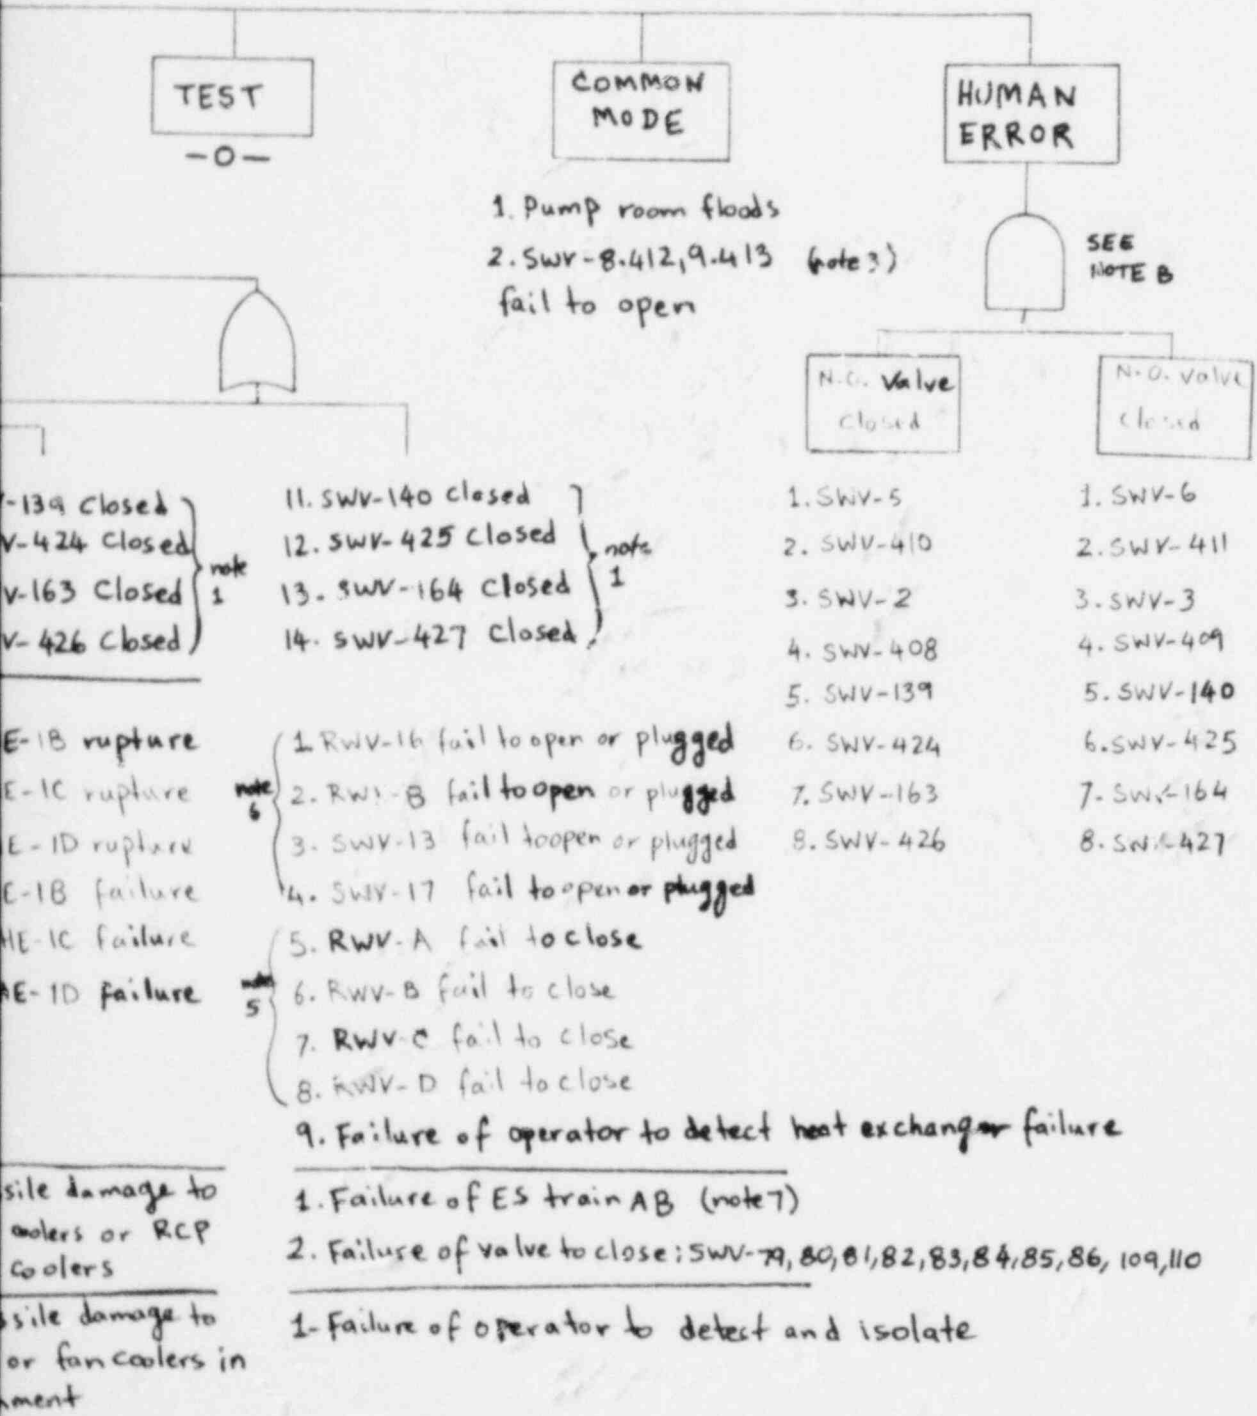 TEST
-0-
COMMON
MODE
HUMAN
ERROR
1. Pump room floods
2. SWV-8.412,9.413 (note 3)
fail to open
SEE
NOTE B
Valve
Closed
N.O. Valve
Closed
-139 Closed
V-424 Closed
V-163 Closed
V-426 Closed
note
1
11. SWV-140 Closed
12. SWV-425 Closed
13. SWV-164 Closed
14. SWV-427 Closed
note
1
1. SWV-5
2. SWV-410
3. SWV-2
4. SWV-408
5. SWV-139
6. SWV-424
7. SWV-163
8. SWV-426
1. SWV-6
2. SWV-411
3. SWV-3
4. SWV-409
5. SWV-140
6. SWV-425
7. SWV-164
8. SWV-427
E-1B rupture
E-1C rupture
E-1D rupture
E-1B failure
HE-1C failure
HE-1D failure
note
6
1. RWV-16 fail to open or plugged
2. fail to open or plugged
3. SWV-13 fail to open or plugged
4. SWV-17 fail to open or plugged
note
5
5. RWV-A fail to close
6. RWV-B fail to close
7. RWV-C fail to close
8. RWV-D fail to close
9. Failure of operator to detect heat exchanger failure
sile damage to
coolers or RCP
coolers
1. Failure of ES train AB (note 7)
2. Failure of valve to close: SWV-79, 80, 81, 82, 83, 84, 85, 86, 109, 110
ssile damage to
or fan coolers in
nment
1- Failure of operator to detect and isolate